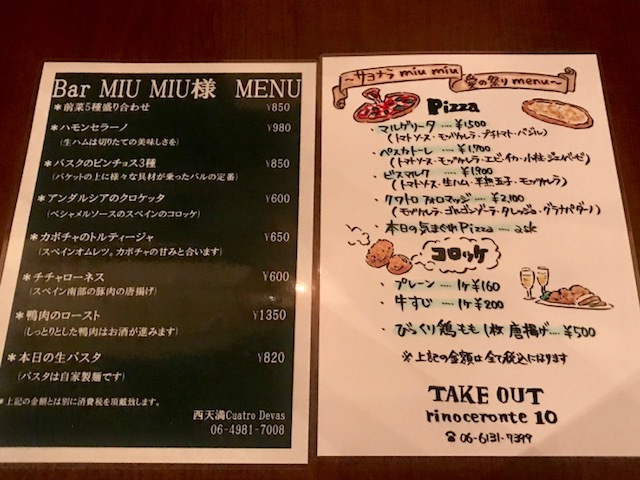 Bar MIU MIU様 MENU
＊前菜5種盛り合わせ ¥850
＊ハモンセラーノ ¥980
(生ハムは切りたての美味しさを)
＊バスクのピンチョス3種 ¥850
(バケットの上に様々な具材が乗ったバルの定番)
＊アンダルシアのクロケッタ ¥600
(ベシャメルソースのスペインのコロッケ)
＊カボチャのトルティージャ ¥650
(スペインオムレツ。カボチャの甘みと合います)
＊チチャローネス ¥600
(スペイン南部の豚肉の唐揚げ)
＊鴨肉のロースト ¥1350
(しっとりとした鴨肉はお酒が進みます)
＊本日の生パスタ ¥820
(パスタは自家製麺です)
＊上記の金額とは別に消費税を頂戴致します。
西天満Cuatro Devas
06-4981-7008
〜サヨナラ miu miu
愛の祭り menu〜
Pizza
・マルゲリータ .... ¥1500
(トマトソース・モッツァレラ・プチトマト・バジル)
・ペスカトーレ .... ¥1,900
(トマトソース・モッツァレラ・エビ・イカ・小柱・ジェノベーゼ)
・ビスマルク .... ¥1900
(トマトソース・生ハム・半熟玉子・モッツァレラ)
・クワトロ フォロマッジ .... ¥2,100
(モッツァレラ・ゴルゴンゾーラ・タレッジョ・グラナパダーノ)
・本日の気まぐれPizza .... ask
コロッケ
・プレーン .... 1ケ ¥160
・牛すじ .... 1ケ ¥200
・びっくり鶏もも1枚唐揚げ... ¥500
※上記の金額は全て税込になります
TAKE OUT
rinoceronte 10
☎06-6131-7399